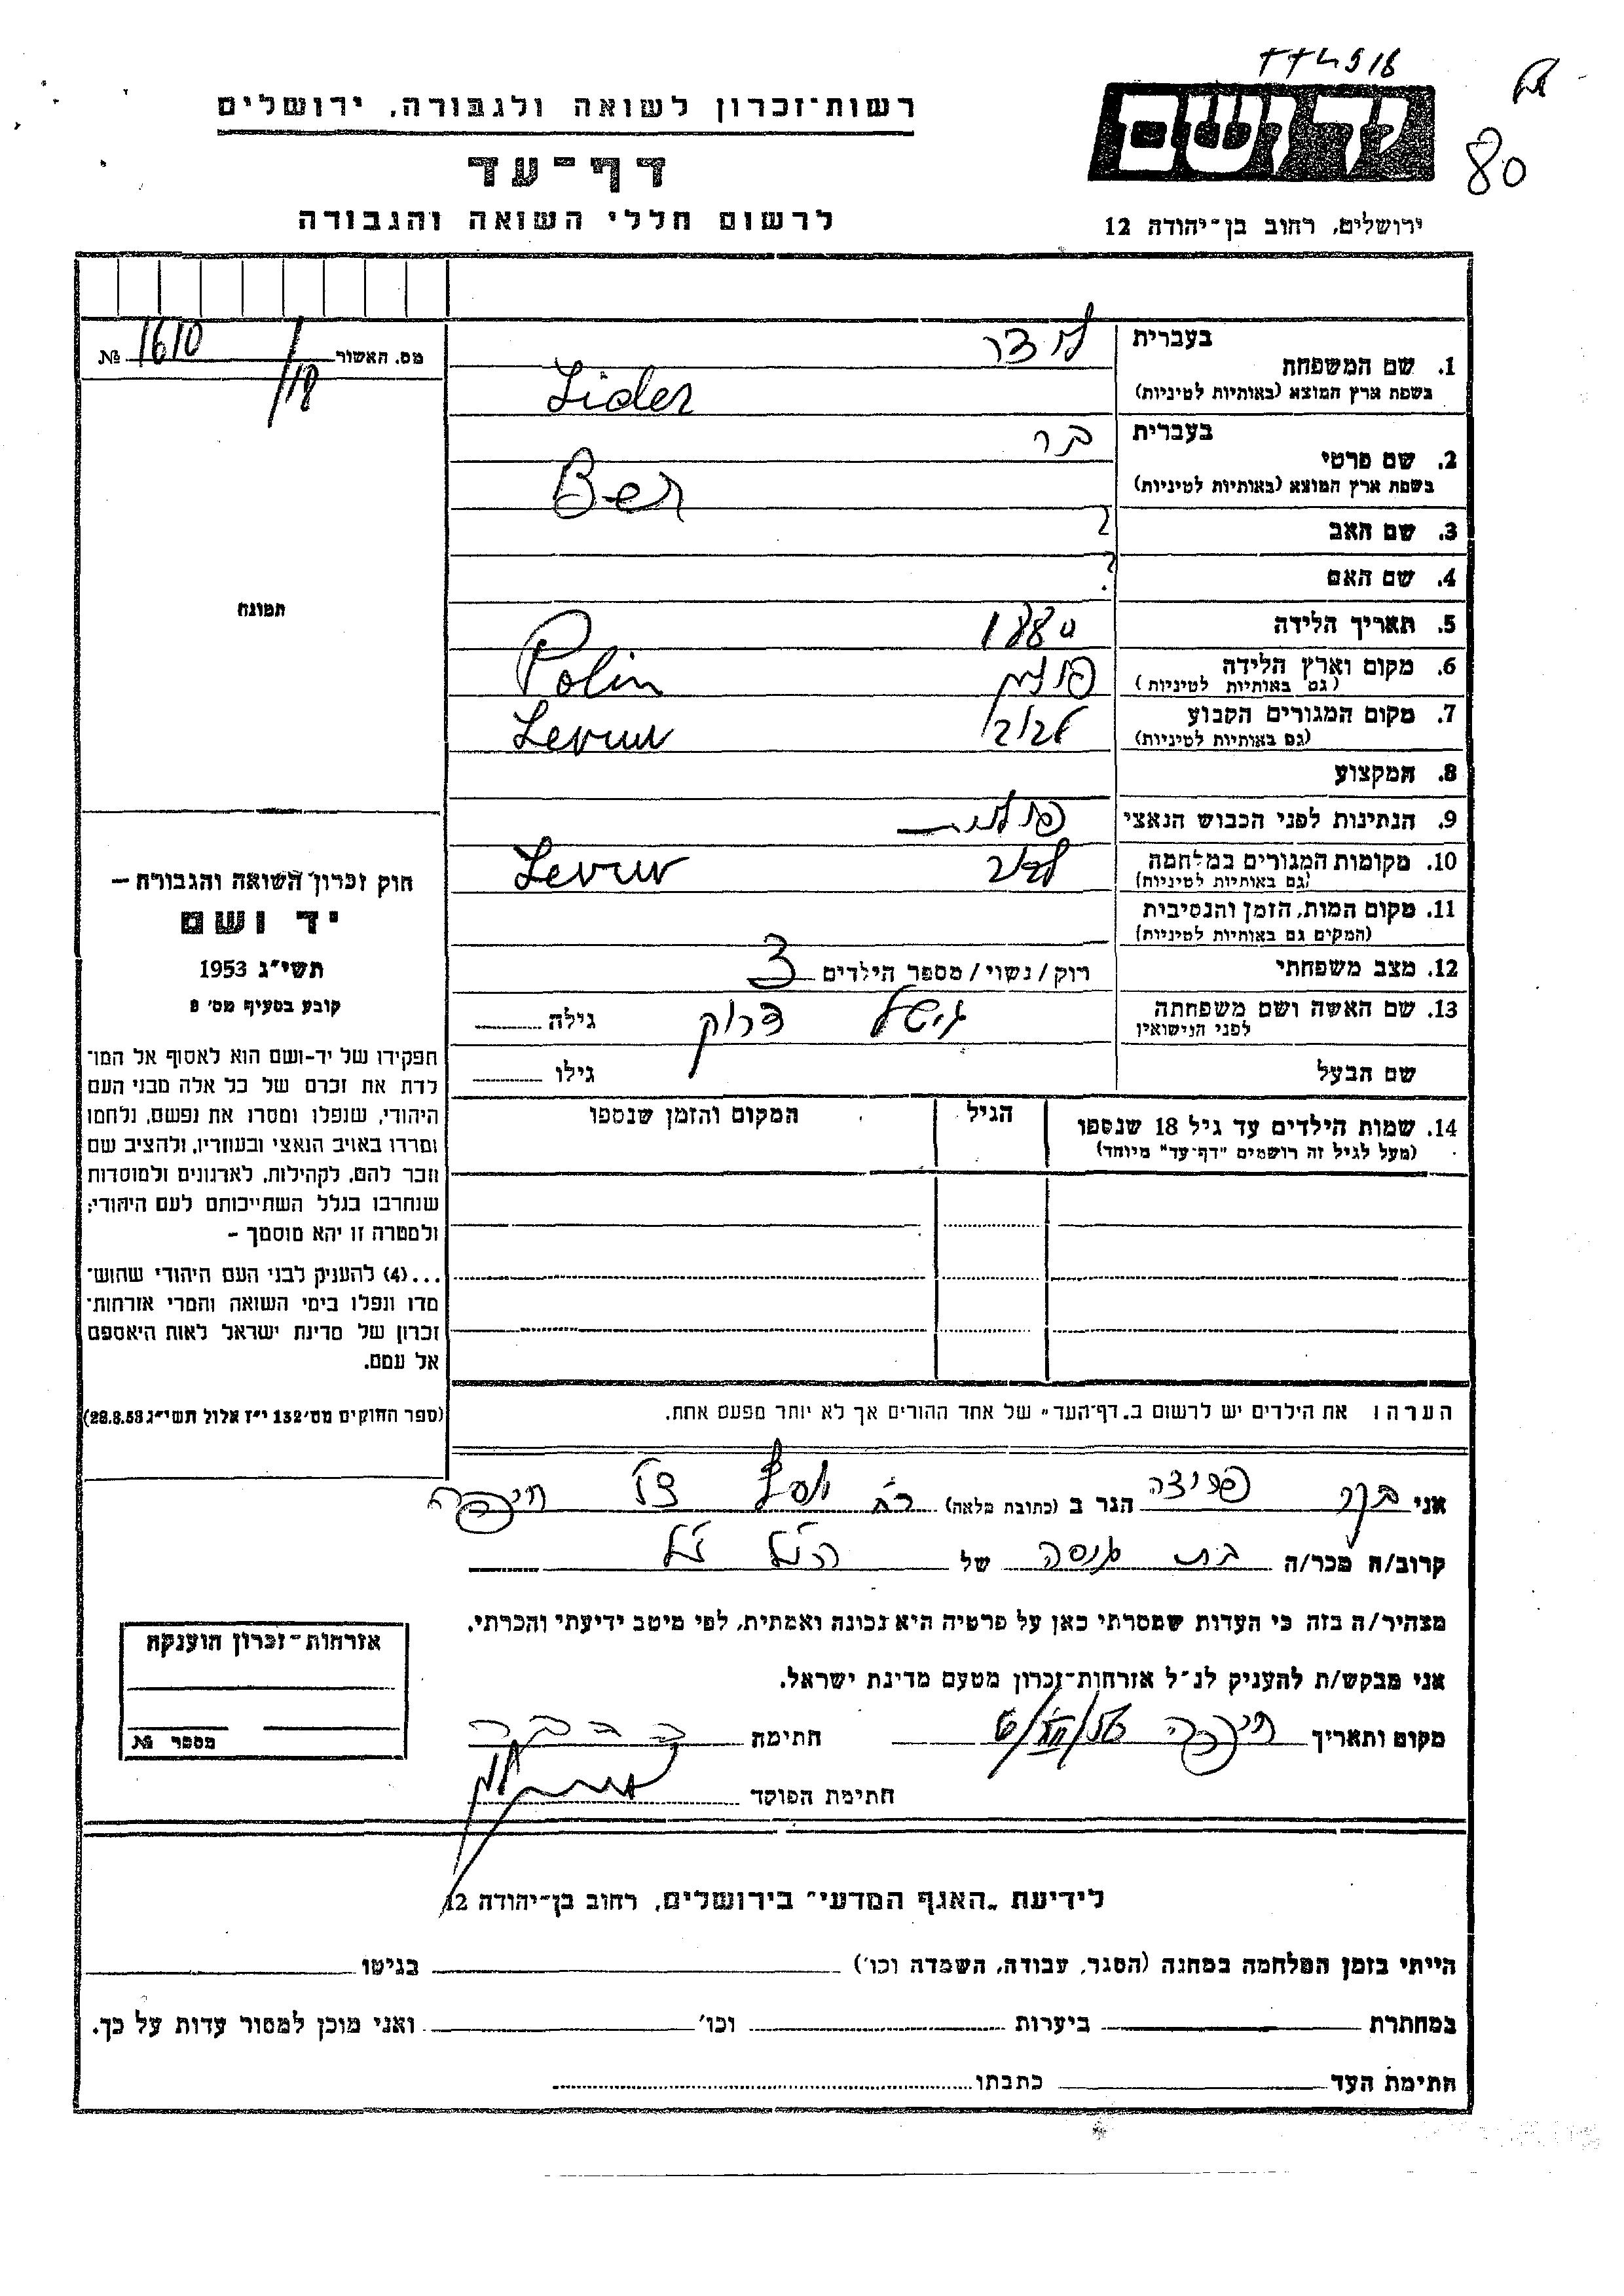 רשות־זכרון לשואה ולגבורה, ירושלים
דף־עד
לרשום חללי השואה והגבורה
יד ושם
80
ירושלים, רחוב בן־יהודה 12
מס. האשור № 1610
/18
1. שם המשפחה
בעברית לידר
בשפת ארץ המוצא (באותיות לטיניות) Lider
2. שם פרטי
בעברית בר
בשפת ארץ המוצא (באותיות לטיניות) Ber
3. שם האב ?
4. שם האם ?
5. תאריך הלידה 1880
6. מקום וארץ הלידה פולין Polin
(גם באותיות לטיניות)
7. מקום המגורים הקבוע לבוב
(גם באותיות לטיניות)
8. המקצוע
9. הנתינות לפני הכבוש הנאצי פולנית
10. מקומות המגורים במלחמה לבוב
(גם באותיות לטיניות)
11. מקום המות, הזמן והנסיבות
(המקום גם באותיות לטיניות)
12. מצב משפחתי רוק/נשוי/מספר הילדים 3
13. שם האשה ושם משפחתה גילה
לפני הנישואין
שם הבעל גילו
14. שמות הילדים עד גיל 18 שנספו הגיל המקום והזמן שנספו
(מעל לגיל זה רושמים "דף־עד" מיוחד)
הערה: את הילדים יש לרשום ב„דף־העד" של אחד ההורים אך לא יותר מפעם אחת.
תמונה
חוק זכרון השואה והגבורה —
יד ושם
תשי"ג 1953
קובע בסעיף מס' 2
תפקידו של יד-ושם הוא לאסוף אל המו־
לדת את זכרם של כל אלה מבני העם
היהודי, שנפלו ומסרו את נפשם, נלחמו
ומרדו באויב הנאצי ובעוזריו, ולהציב שם
וזכר להם, לקהילות, לארגונים ולמוסדות
שנחרבו בגלל השתייכותם לעם היהודי;
ולמטרה זו יהא מוסמך –
...(4) להעניק לבני העם היהודי שהוש־
מדו ונפלו בימי השואה והמרי אזרחות־
זכרון של מדינת ישראל לאות היאספם
אל עמם.
(ספר החוקים מס' 132 י"ז אלול תשי"ג 28.8.53)
אני בקר פריצה הגר ב (כתובת מלאה) חיפה
קרוב/ה מכר/ה של הנ"ל
מצהיר/ה בזה כי העדות שמסרתי כאן על פרטיה היא נכונה ואמתית, לפי מיטב ידיעתי והכרתי.
אני מבקש/ת להעניק לנ"ל אזרחות־זכרון מטעם מדינת ישראל.
מקום ותאריך חיפה חתימה
חתימת הפוקד
אזרחות־זכרון הוענקה
מספר №
לידיעת „האגף המדעי" בירושלים, רחוב בן־יהודה 12
הייתי בזמן המלחמה במחנה (הסגר, עבודה, השמדה וכו') בגיטו
במחתרת ביערות וכו' ואני מוכן למסור עדות על כך.
חתימת העד כתבתו